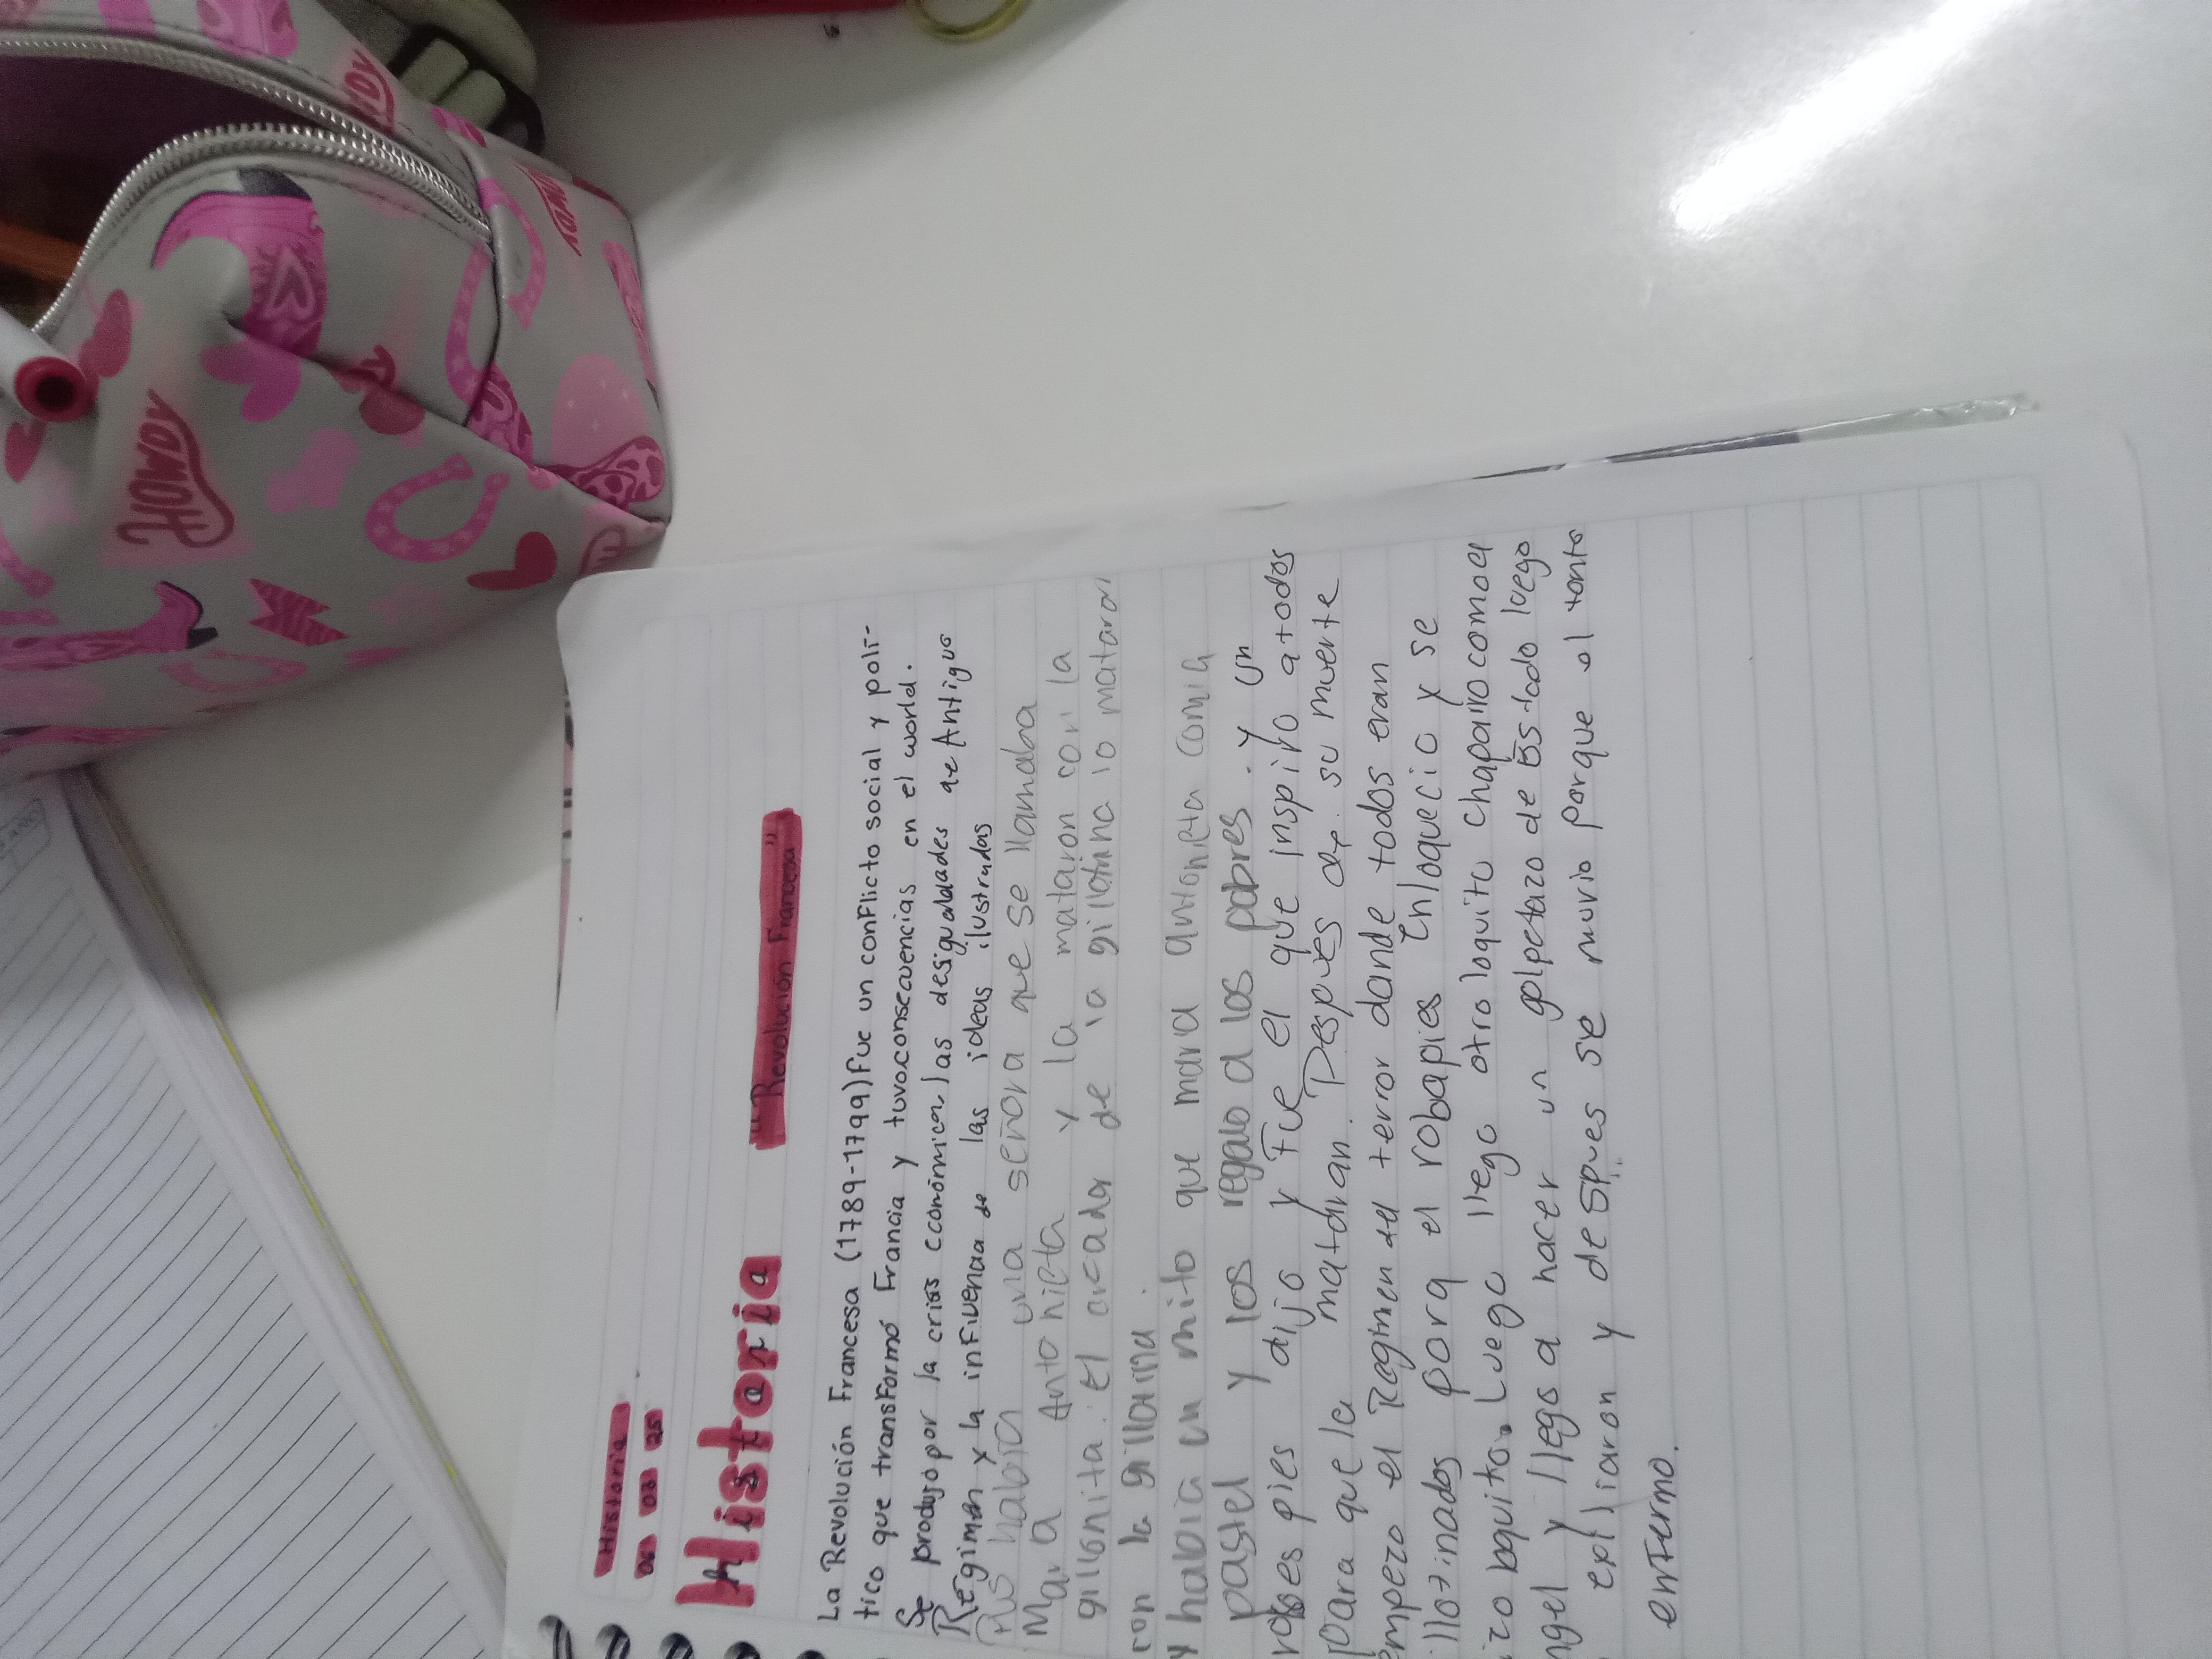 Historia
06 03 25
Historia "Revolución Francesa"
La Revolución Francesa (1789-1799) Fue un conflicto social y polí-
tico que transformó Francia y tuvo consecuencias en el world.
Se produjo por la crisis económica, las desigualdades de Antiguo
Régimen y la influencia de las ideas ilustradas
Pus habia una señora que se llamaba
Maria Antonieta y la mataron con la
gillonita. El creador de la gillotina lo mataron
con la gillotina.
Y habia un mito que maria antonieta comia
pastel y los regalo a los pobres. Y un
pies dijo y Fue el que inspiro a todos
para que la mataran. Después de su muerte
empezo el Regimen del terror donde todos eran
illotinados porq el robapies Enloquecio y se
loquito. Luego llego otro loquito chaparro como el
ngel y llego a hacer un golpetazo de Estado luego
exiliaron y despues se murio porque el tonto
enfermo.
HOWDY